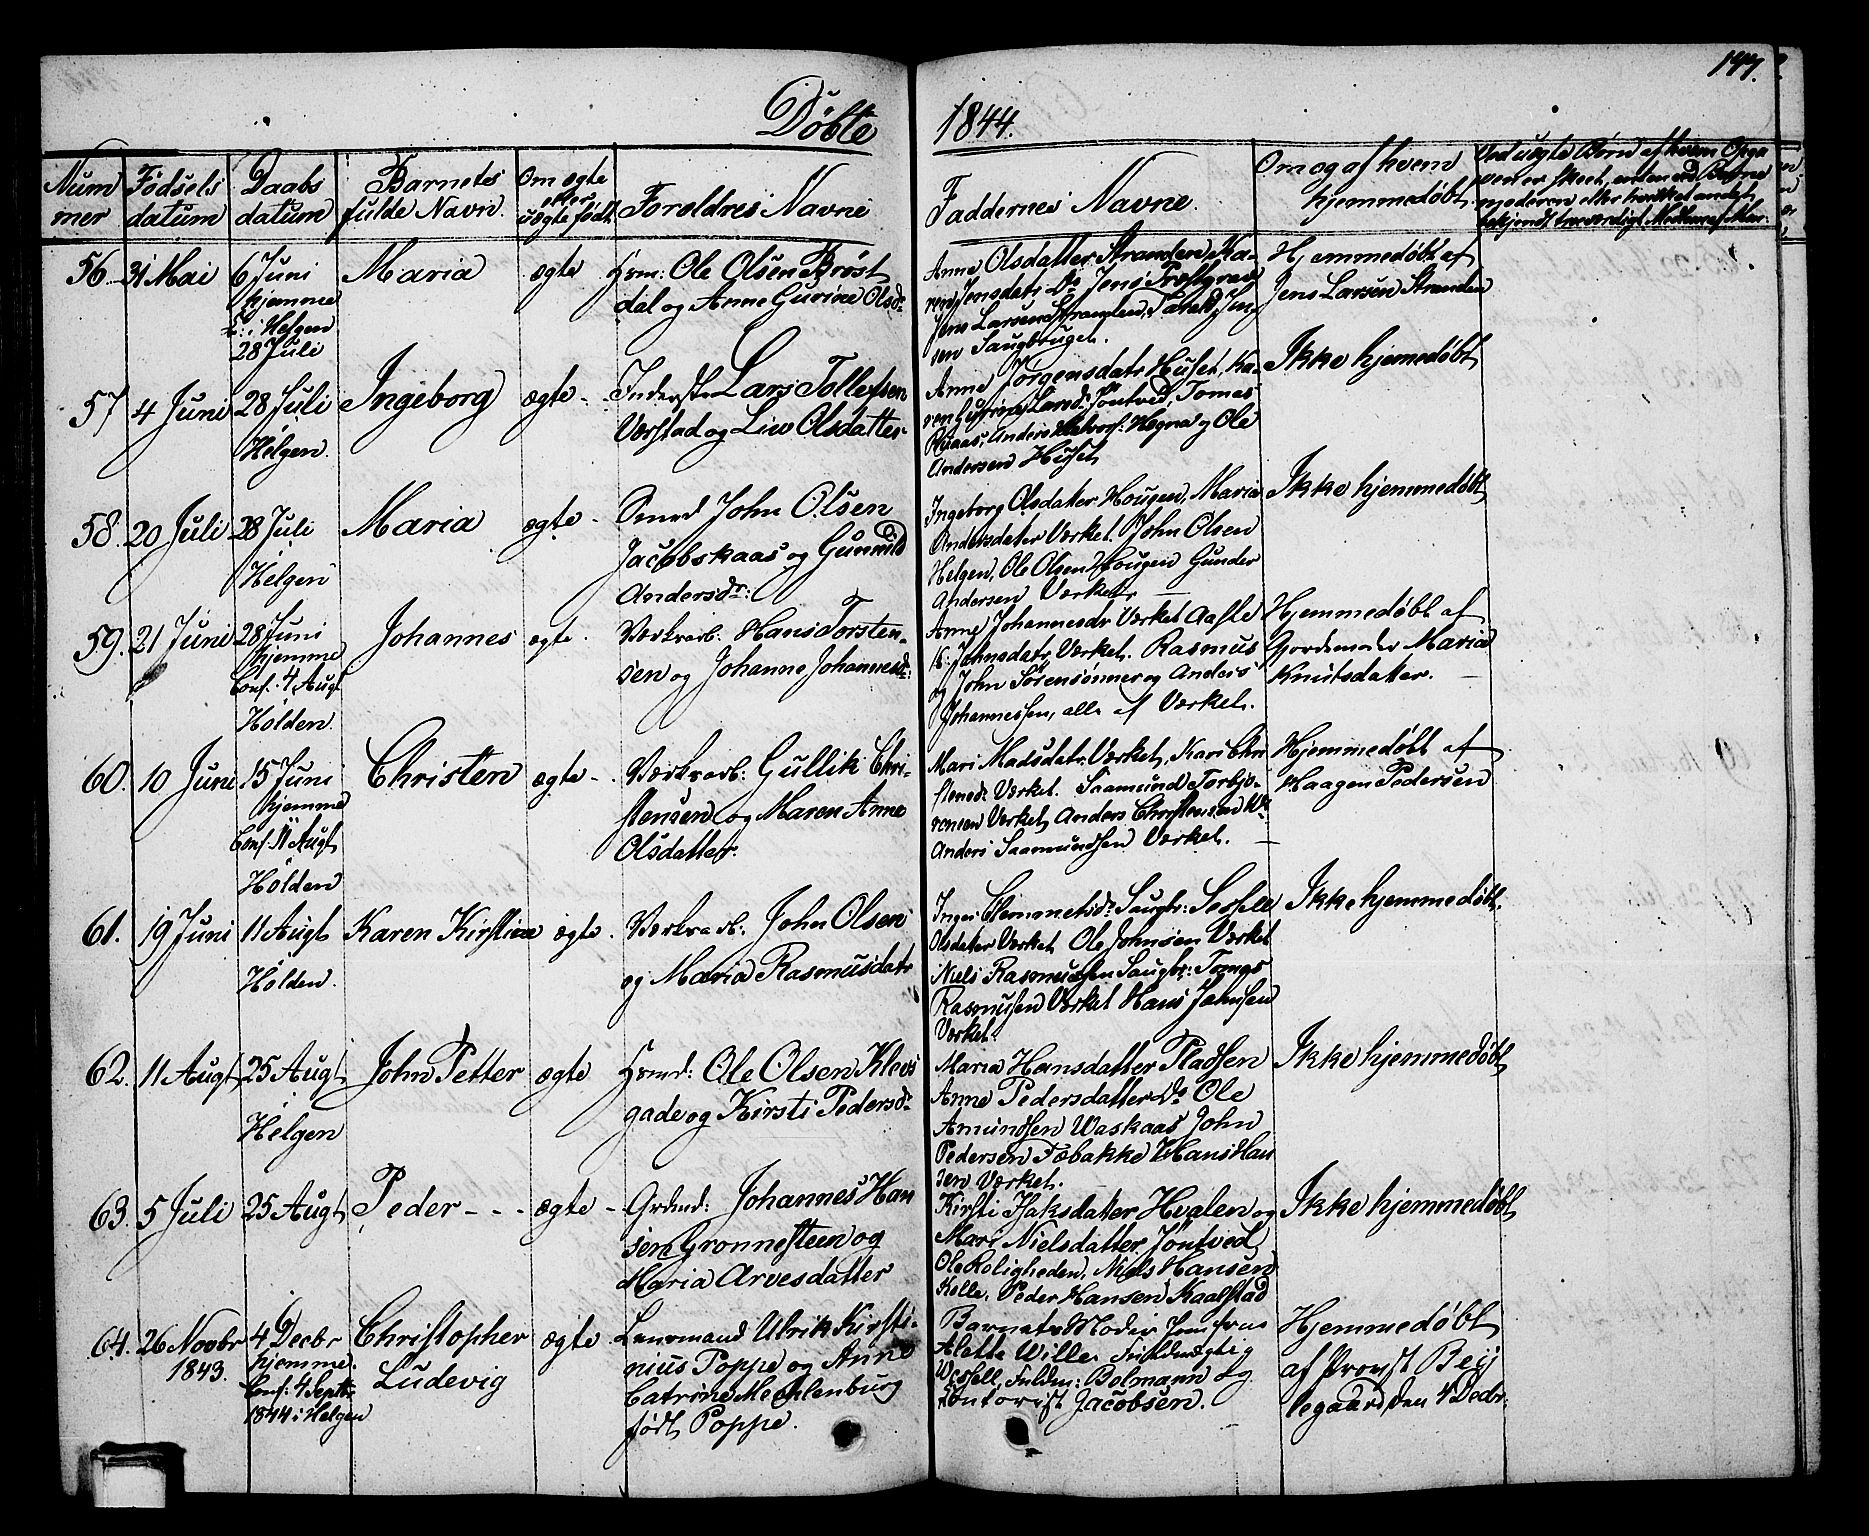 147.
Døbte 1844.
Nummer
Fødsels datum
Daabs datum
Barnets fulde Navn
Om ægte eller uægte født
Foreldres Navne
Faddernes Navne.
Om og af hvem hjemmedøbt.
Ved uægte Børn af hvem Opga
ven er skeet, enten ved Barne
moderen eller hvilket andet
bekjendt troværdigt
56. 31 Mai
6 Juni
hjemme
i Helgen
28 Juli
Maria
ægte
Hrm: Ole Olsen Brøst
dal og Anne Gurine Olsdr
Anne Olsdatter Stranden Ka-
ren Jensdatr Do Jens
Jens Larsen Stranden,
sen Saugbruget.
Hjemmedøbt af
Jens Larsen Stranden
57 4 Juni
28 Juli
Helgen.
Ingeborg
ægte -
Inderste Lars Tollefsen
Værstad og Live Olsdatter-
Anne Jørgensdatr Huset, Ka-
ren Gurine Larsdr Jøntved, Tomas
Anders Halvors: Hegna og Ole
Andersen Huset
Ikke hjemedøbt
58. 20 Juli
28 Juli
Helgen
Maria
ægte -
Smed John Olsen
Jacobskaas og Gunnild
Andersdr:
Ingeborg Olsdater Hougen, Maria
Andersdater Værket. John Olsen
Helgen, Ole Olsen Hougen Gunder
Andersen Værket
Ikke hjemmedøbt
59. 21 Juni
28 Juni
hjemme
Conf. 4 Augt
Holden
Johannes
ægte.
Værkarb: Hans Torsten-
sen og Johanne Johannesdr:
Anne Johannesdr Værket Aasle
Johnsdatr Værket. Rasmus
og John Sørensønner og Anders
Johannessen, alle af Værket.
Hjemmedøbt af
Jordemoder Maria
Knutsdatter.
60. 10 Juni
15 Juni
hjemme
Conf. 11 Augt
Holden
Christen
ægte -
Værkarb: Gullik Chri-
stensen og Maren Anne
Olsdatter.
Mari Madsdatr Værket, Kari Chri
stensdr Værket. Saamund Torbjø-
rensen Værket Anders Christensen
Anders Saamundsen Værket.
Hjemmedøbt af
Haagen Pedersen
61. 19 Juni
11 Augt
Holden.
Karen Kirstine
ægte.
Værkarb: John Olsen
og Maria Rasmusdatr
Inger Clemmetsdr Saugbr: Sessele
Olsdater Værket Ole Johnsen Værket
Niels Rasmussen Saugbr: Tomas
Rasmusen Værket Hans Johnsen
Værket
Ikke hjemmedøbt.
62. 11 Augt
25 Augt
Helgen
John Petter
ægte
Hrmd: Ole Olsen Klevs
gade og Kirsti Pedersdr
Maria Hansdatter Pladsen
Anne Pedersdatter Do Ole
Amundsen Waskaas John
Pedersen Fæbakke Hans Han
sen Værket.
Ikke hjemmedøbt
63. 5 Juli
25 Augt
Peder - - -
ægte -
Grdmd: Johannes Han
sen Grønnesteen og
Maria Arvesdatter
Kirsti Isaksdatter Hvalen og
Mari Nielsdatter Jøntved
Ole Roligheden, Niels Hansen
Kelle. Peder Hansen Kaasstad
Ikke hjemmedøbt
64. 26 Novbr
1843.
4 Decbr
hjemme.
Conf: 4 Septr
1844 i Helgen
Christopher
Ludevig
ægte
Lensmand Ulrik Kirsti-
nius Poppe og Anne
Catrine Mechlenburg
født Poppe.
Barnets Moder Jomfrue
Alette Wille. Fuldmægtig
Wessell, Fuldm: Bolmann og
Kontorist Jacobsen.
Hjemmedøbt
af Provst Beij
legaard den 4 Decbr.